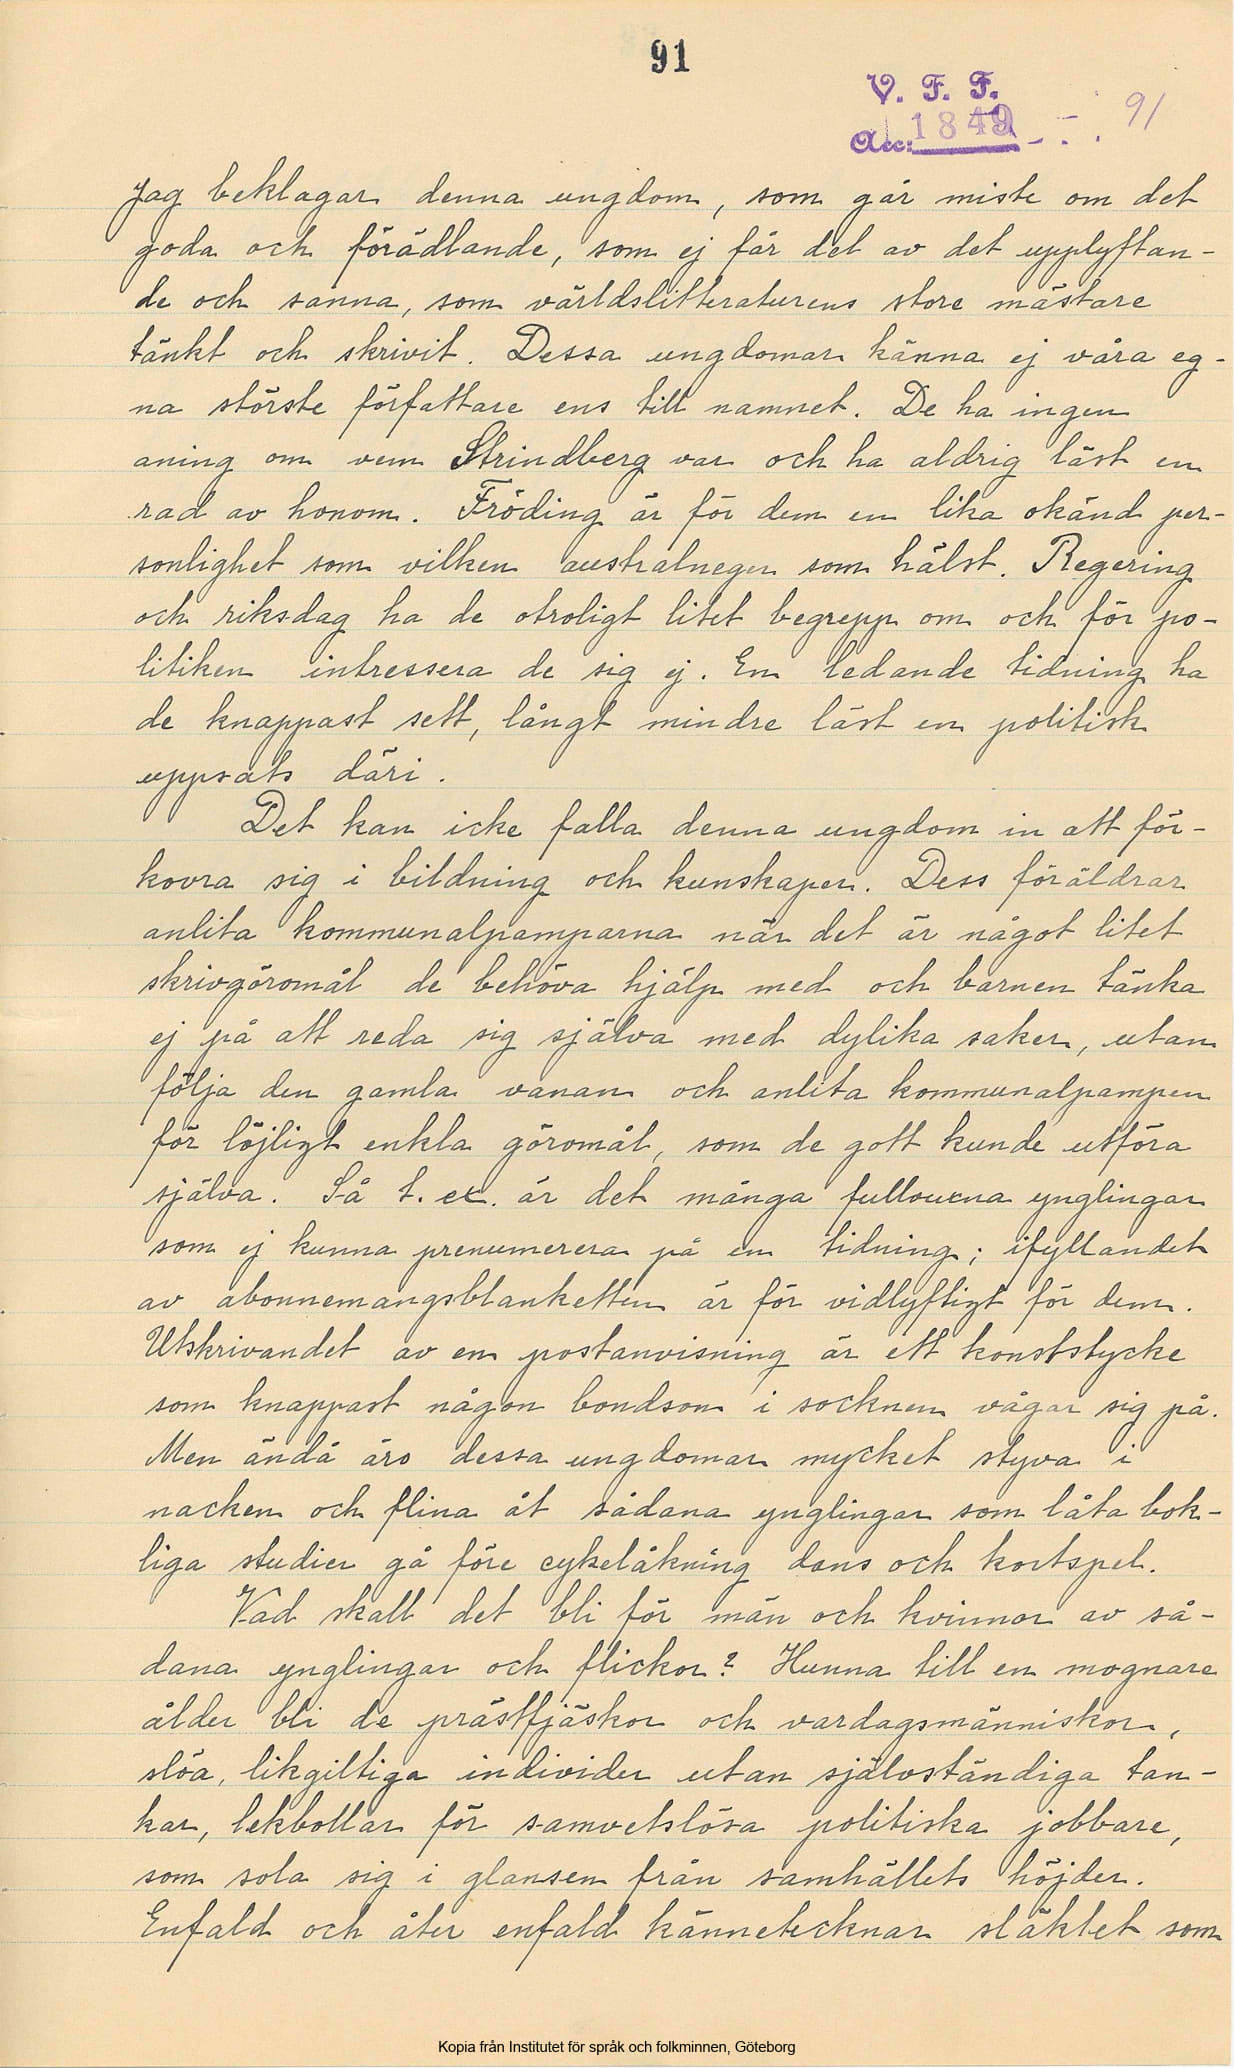 91
V. F. F.
Acc: 1849 91
Jag beklagar denna ungdom, som går miste om det
goda och förädlande, som ej får del av det upplyftan-
de och sanna, som världslitteraturens store mästare
tänkt och skrivit. Dessa ungdomar känna ej våra eg-
na störste författare ens till namnet. De ha ingen
aning om vem Strindberg var och ha aldrig läst en
rad av honom. Fröding är för dem en lika okänd per-
sonlighet som vilken australneger som hälst. Regering
och riksdag ha de otroligt litet begrepp om och för po-
litiken intressera de sig ej. En ledande tidning ha
de knappast sett, långt mindre läst en politisk
uppsats däri.
Det kan icke falla denna ungdom in att för-
kovra sig i bildning och kunskaper. Dess föräldrar
anlita kommunalpamparna när det är något litet
skrivgöromål de behöva hjälp med och barnen tänka
ej på att reda sig själva med dylika saker, utan
följa den gamla vanan och anlita kommunalpampen
för löjligt enkla göromål, som de gott kunde utföra
själva. Så t. ex. är det många fullvuxna ynglingar
som ej kunna prenumerera på en tidning; ifyllandet
av abonnemangsblanketten är för vidlyftigt för dem.
Utskrivandet av en postanvisning är ett konststycke
som knappast någon bondson i socknen vågar sig på.
Men ändå äro dessa ungdomar mycket styva i
nacken och flina åt sådana ynglingar som låta bok-
liga studier gå före cykelåkning dans och kortspel.
Vad skall det bli för män och kvinnor av så-
dana ynglingar och flickor? Hunna till en mognare
ålder bli de prästfjäskor och vardagsmänniskor,
slöa, likgiltiga individer utan självständiga tan-
kar, lekbollar för samvetslösa politiska jobbare,
som sola sig i glansen från samhällets höjder.
Enfald och åter enfald kännetecknar släktet som
Kopia från Institutet för språk och folkminnen, Göteborg